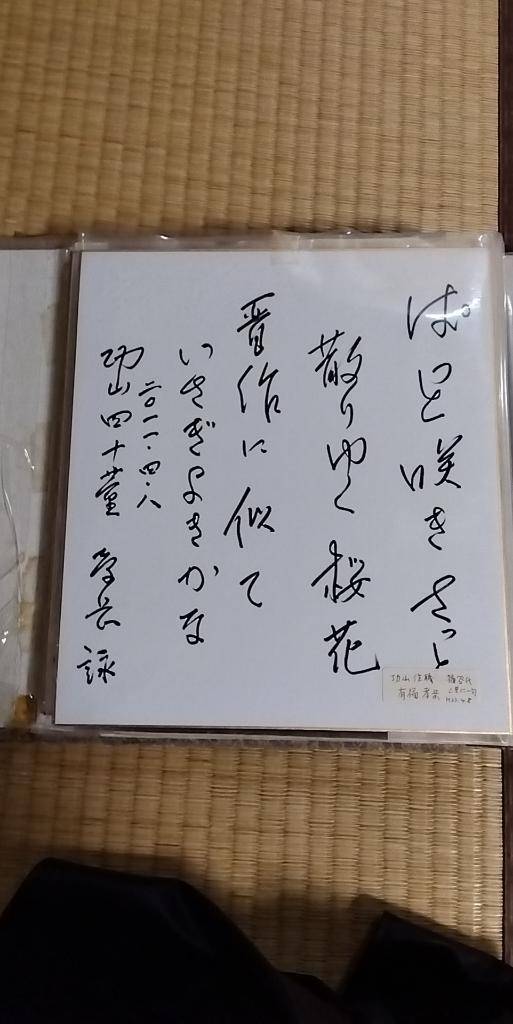 ぱっと咲きさっと
散りゆく桜花
晋作に似て
いさぎよきかな
二〇一一・四・八
功山四十董 孝岳 詠
功山 住職
有福 孝岳